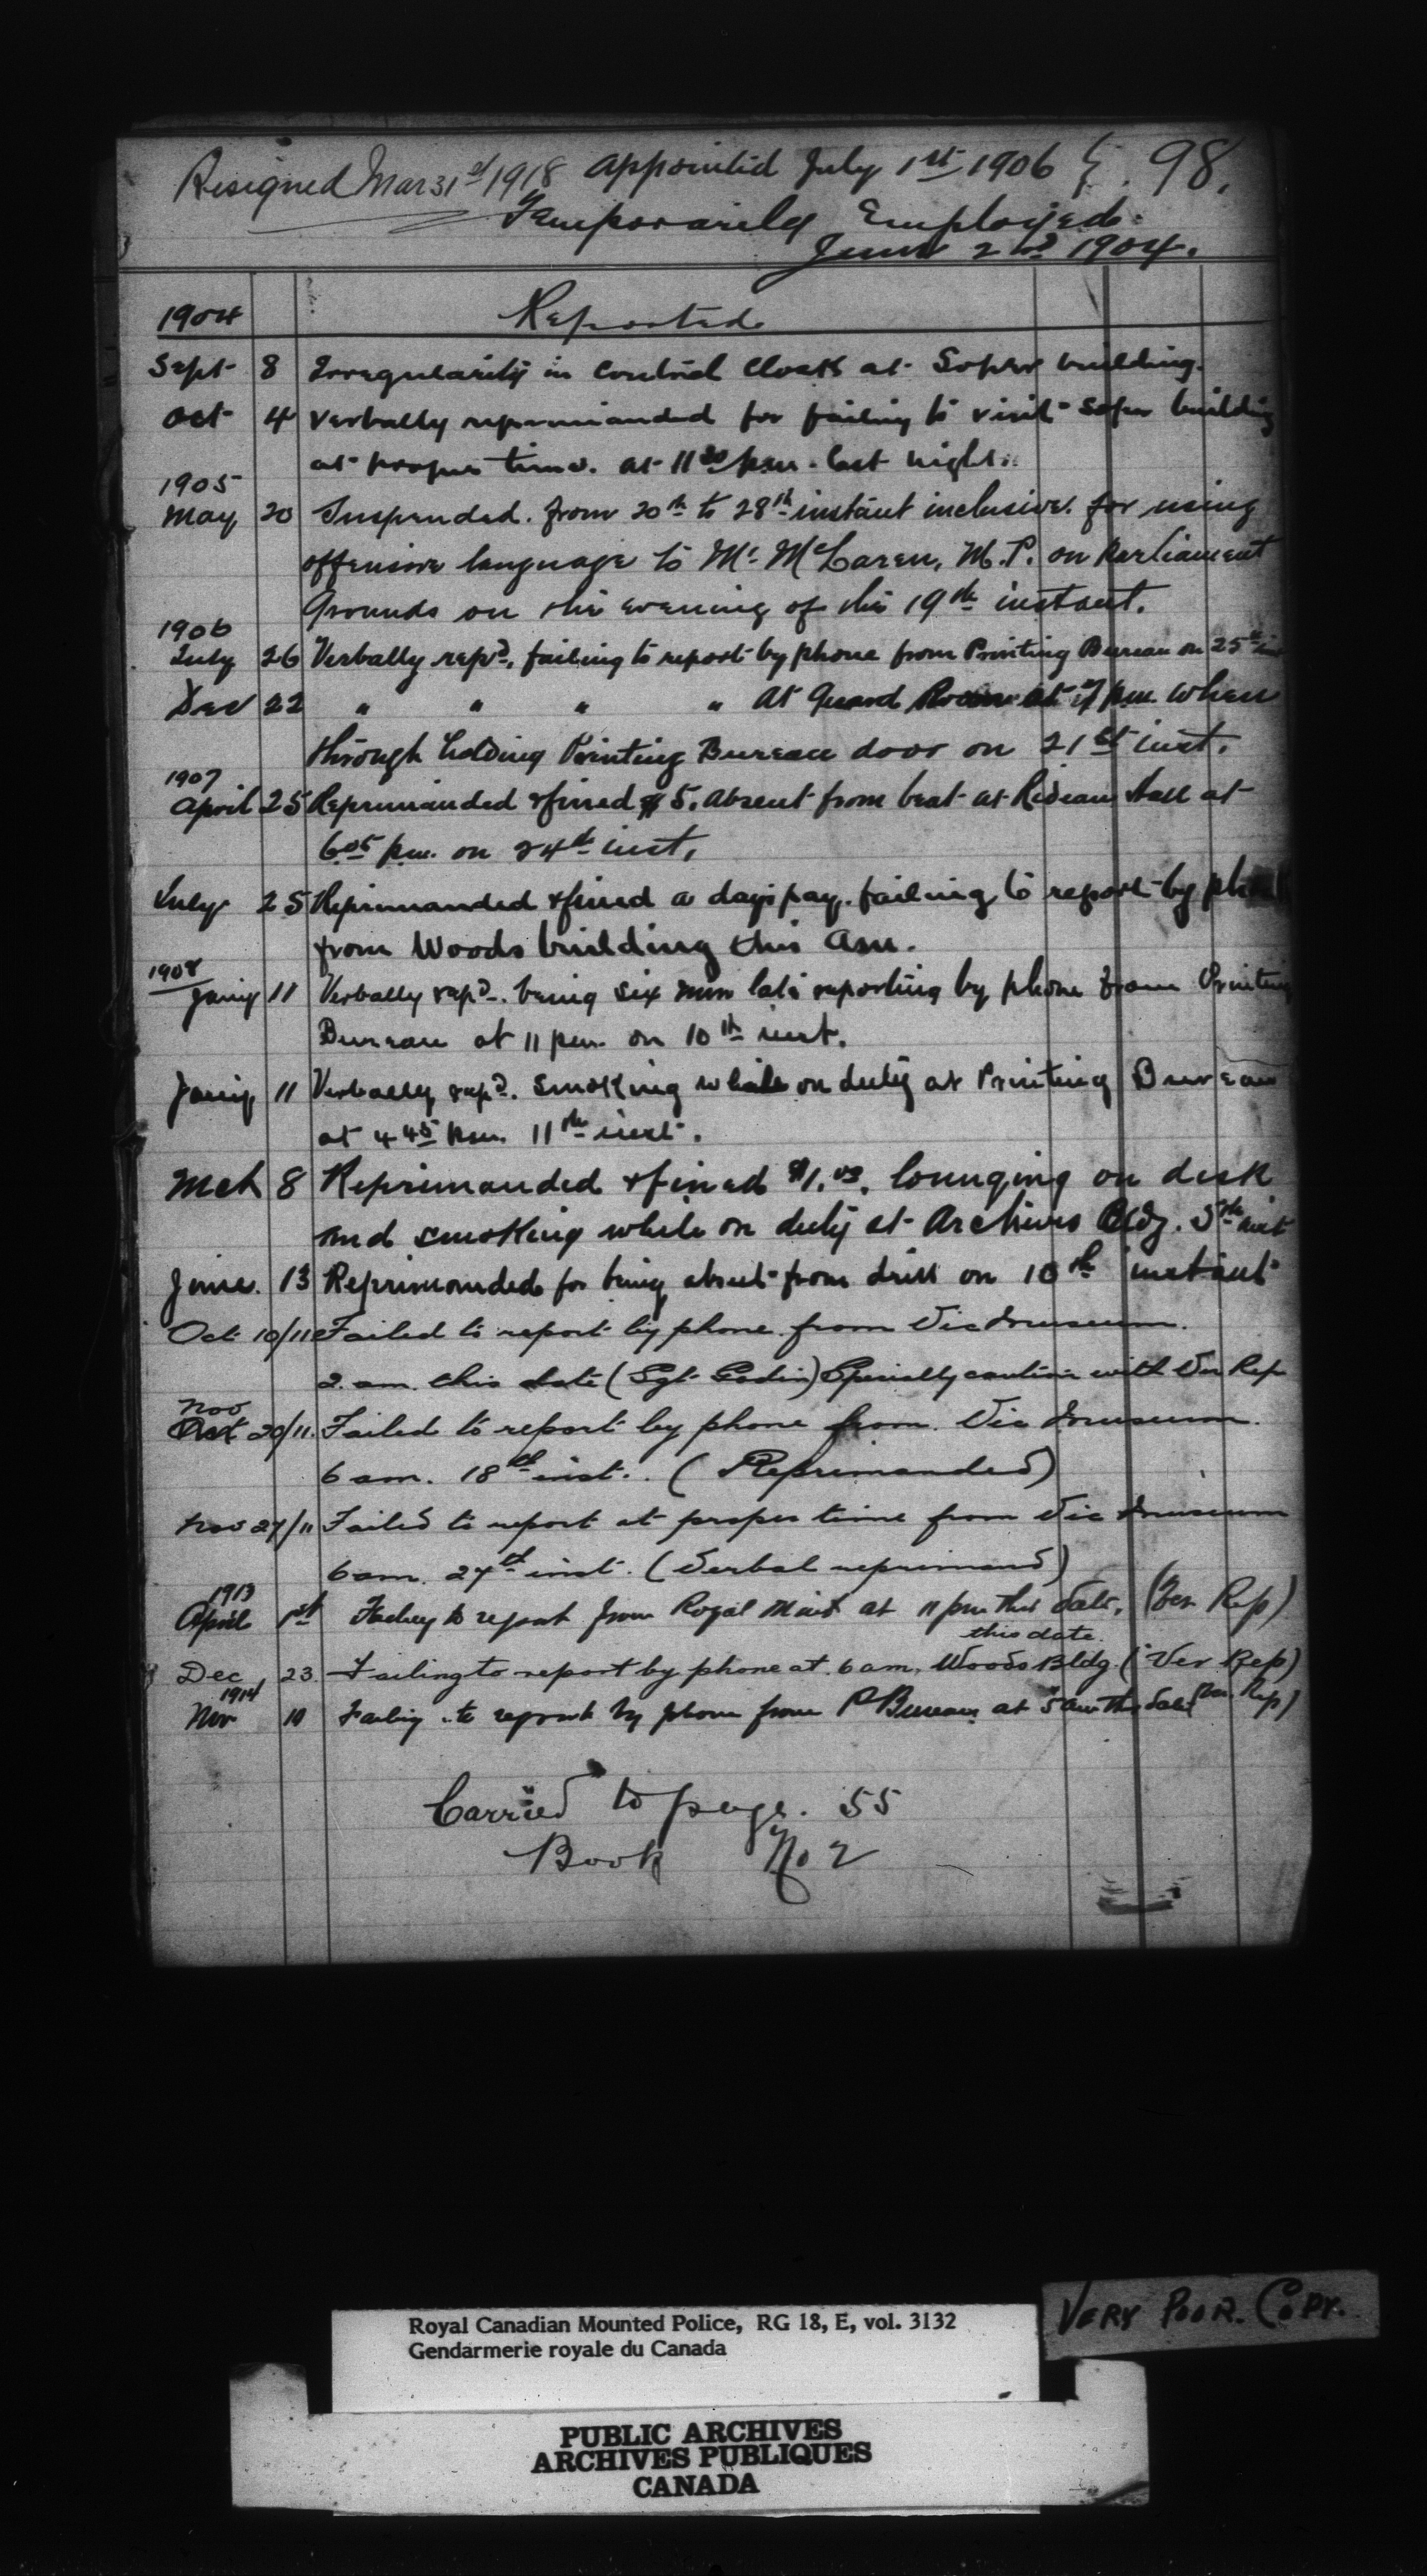 Resigned Mar 31st/1918 appointed July 1st 1906 } . 98.
Temporarily Employed.
June 2nd 1904.
1904 Reported
Sept 8 Irregularity in Control Clock at Soper building.
Oct 4 Verbally reprimanded for failing to visit Soper building
at proper time. at 11 30 p.m. last night.
1905
May 20 Suspended. from 20th to 28th instant inclusive. for using
offensive language to Mr. McLaren, M.P. on Parliament
Grounds on the evening of the 19th instant.
1906
July 26 Verbally repd. failing to report by phone from Printing Bureau on 25th inst
Dec 22 " " " " At Guard Room at 7 p.m. when
through holding Printing Bureau door on 21st inst.
1907
April 25 Reprimanded & fined $5. absent from beat at Rideau Hall at
6.05 p.m. on 24th inst.
July 25 Reprimanded & fined a days pay. failing to report by phone
from Woods building this am.
1908
Jany 11 Verbally repd. being six min late reporting by phone from Printing
Bureau at 11 p.m. on 10th inst.
Jany 11 Verbally repd. smoking while on duty at Printing Bureau
at 4 45 p.m. 11th inst.
Mch 8 Reprimanded & fined $1.00. lounging on desk
and smoking while on duty at Archives Bldg. 5th inst
June. 13 Reprimanded for being absent from drill on 10th instant
Oct 10/11 Failed to report by phone from Vic Museum.
2. am. this date (Sgt. Godin) Specially caution with Ver Rep
Nov
Oct 20/11. Failed to report by phone from. Vic Museum.
6 am. 18th inst. (Reprimanded)
Nov 27/11 Failed to report at proper time from Vic Museum
6 am. 27th inst. (Verbal reprimand)
1913
April 1st Failing to report from Royal Mint at 11 pm this date. (Ver Rep)
this date.
Dec 23. Failing to report by phone at 6 am. Woods Bldg. (Ver Rep)
1914
Nov 10 Failing to report by phone from P Bureau at 5 am this date (Ver. Rep)
Carried to page. 55
Book No 2
VERY POOR. COPY.
Royal Canadian Mounted Police, RG 18, E, vol. 3132
Gendarmerie royale du Canada
PUBLIC ARCHIVES
ARCHIVES PUBLIQUES
CANADA